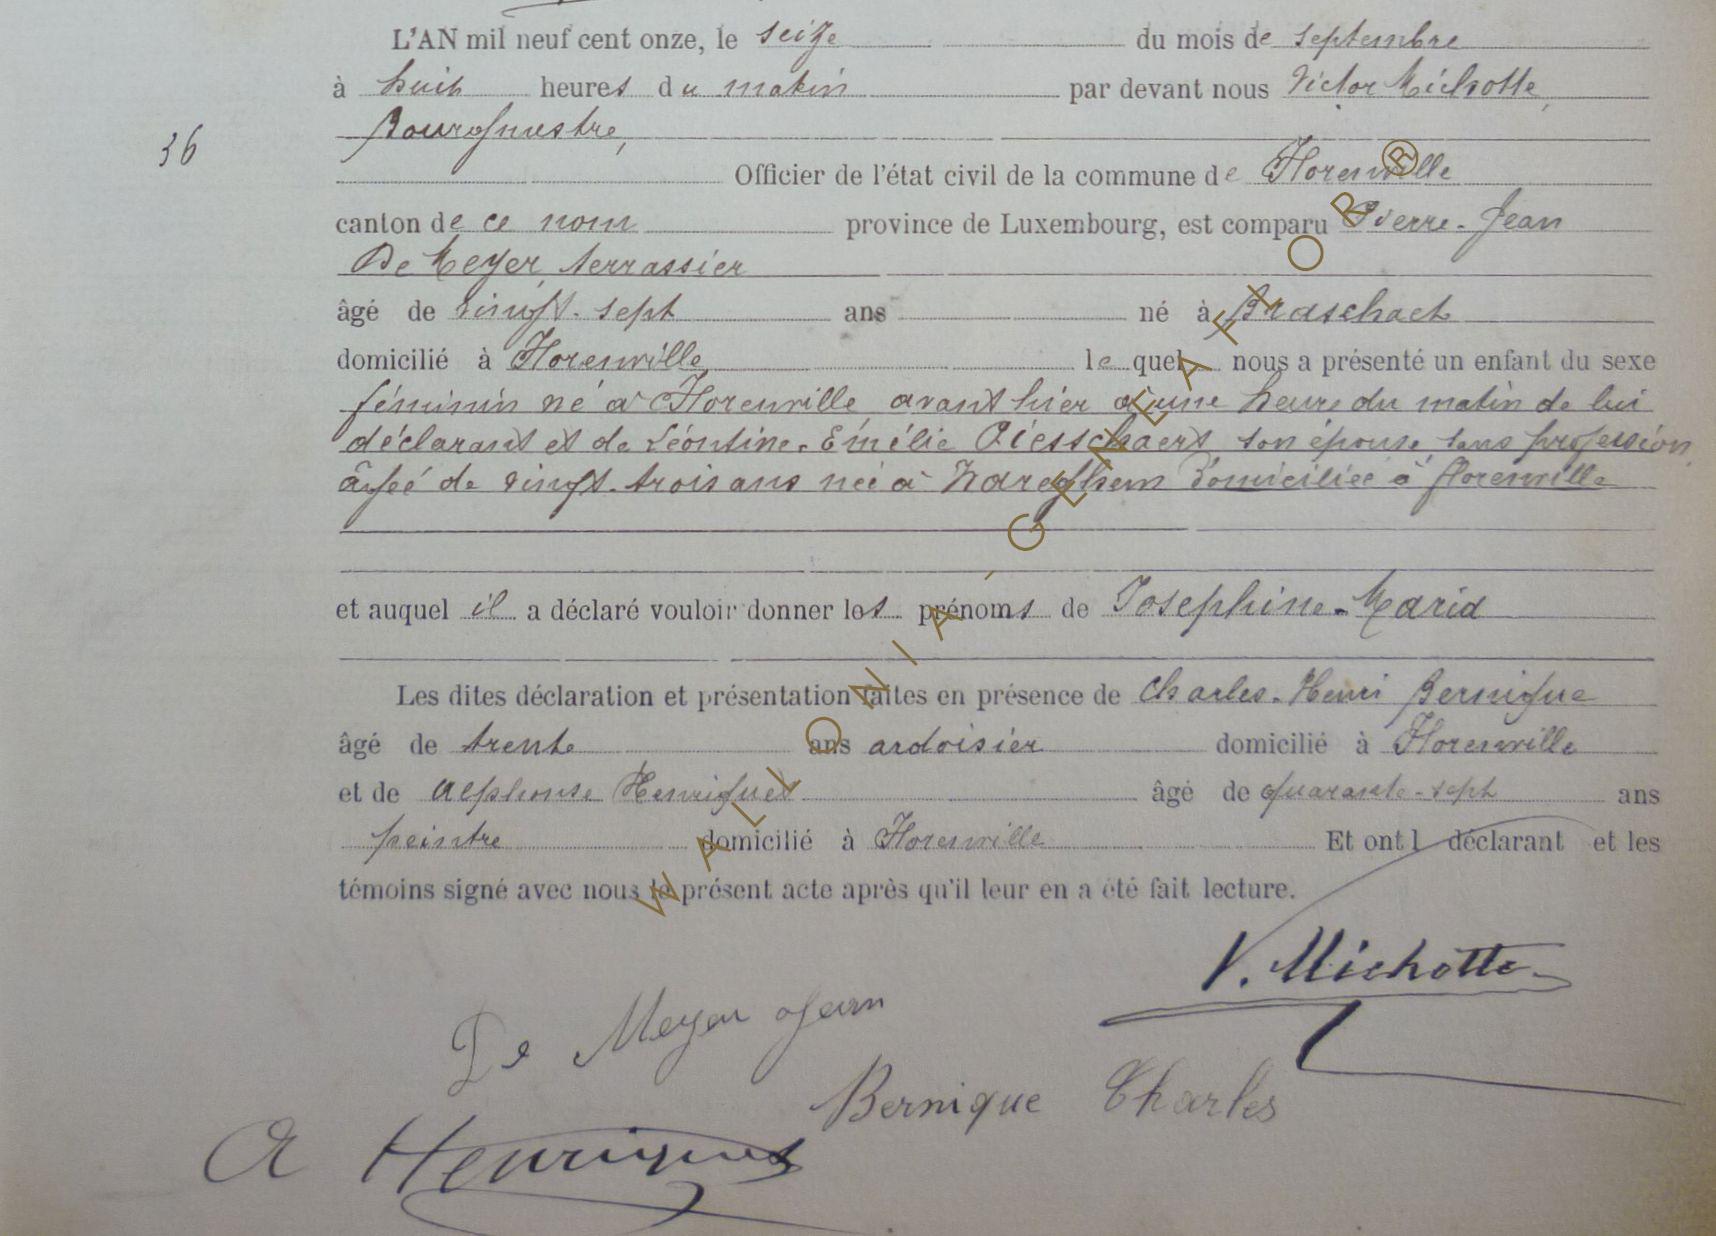 L'AN mil neuf cent onze, le seize du mois de septembre
à huit heures du matin par devant nous Victor Michotte,
Bourgmestre,
36
Officier de l'état civil de la commune de Florenville
canton de ce nom province de Luxembourg, est comparu Pierre-Jean
De Meyer, terrassier
âgé de vingt-sept ans né à Braschaet
domicilié à Florenville le quel nous a présenté un enfant du sexe
féminin né à Florenville avant hier à une heure du matin de lui
déclarant et de Léontine-Emélie son épouse, sans profession
âgée de vingt-trois ans née à domiciliée à Florenville
et auquel il a déclaré vouloir donner les prénoms de Josephine-Maria
Les dites déclaration et présentation faites en présence de Charles-Henri Bernique
âgé de trente ans ardoisier domicilié à Florenville
et de Alphonse Henriquet âgé de quarante-sept ans
peintre domicilié à Florenville Et ont l déclarant et les
témoins signé avec nous le présent acte après qu'il leur en a été fait lecture.
V. Michotte
De Meyer Jean
Bernique Charles
A Henriquet
WALLONIA - GENEAFLOR ®